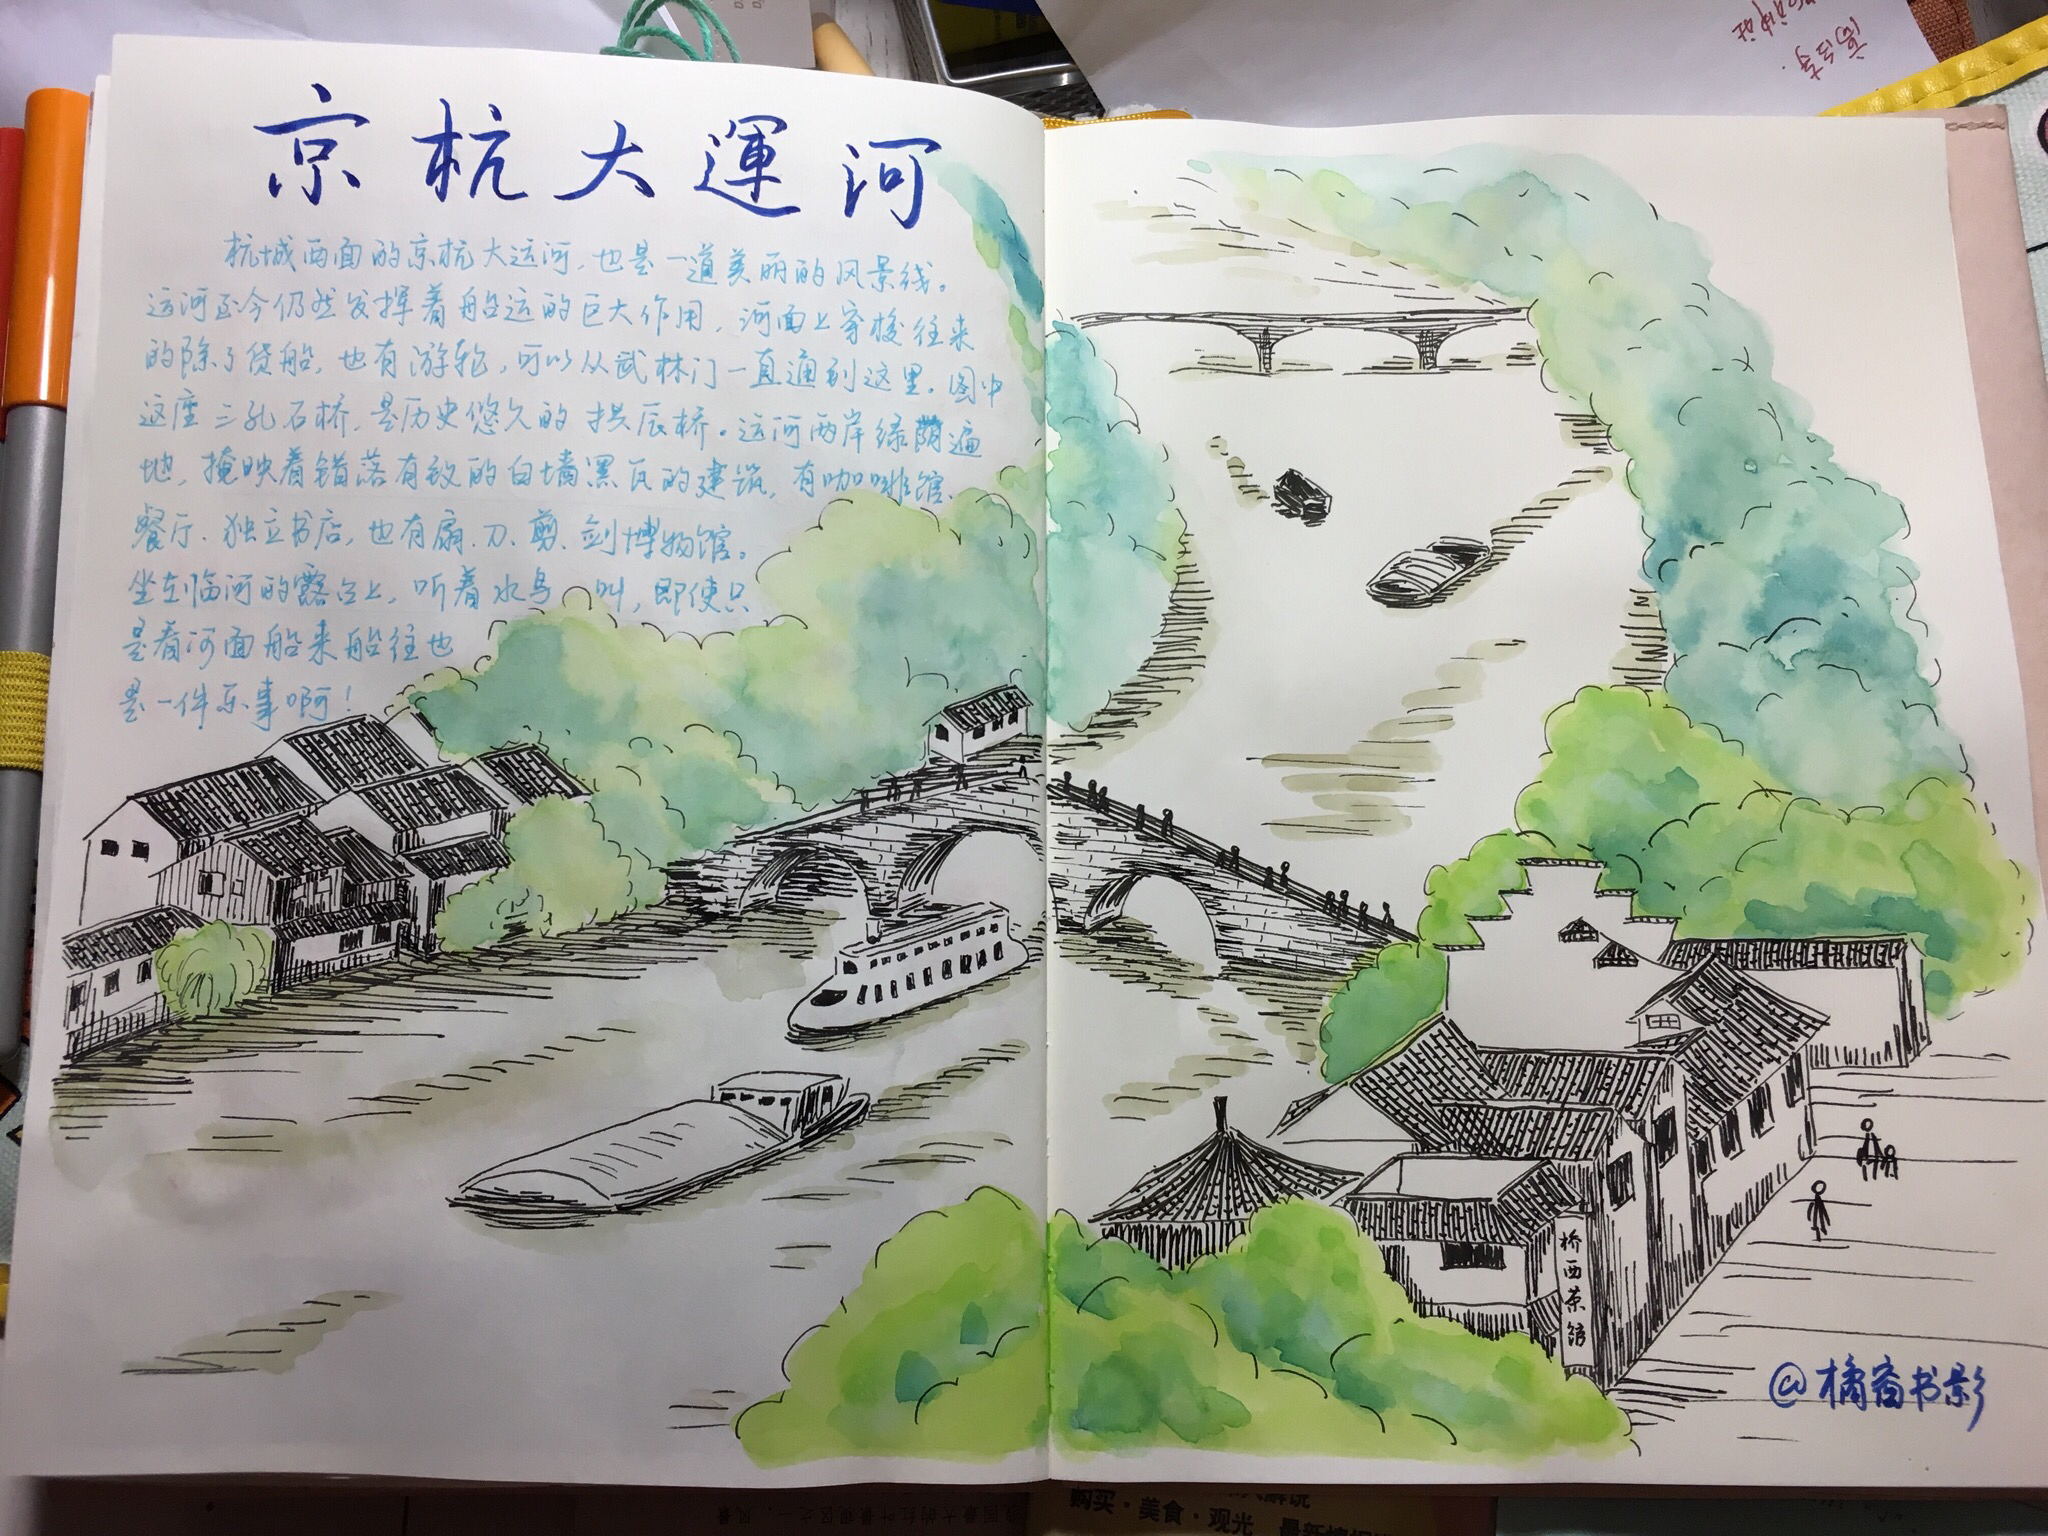 京杭大運河
杭城西面的京杭大运河,也是一道美丽的风景线。
运河至今仍然发挥着船运的巨大作用,河面上穿梭往来
的除了货船,也有游轮,可以从武林门一直通到这里。图中
这座三孔石桥,是历史悠久的拱辰桥。运河两岸绿荫遍
地,掩映着错落有致的白墙黑瓦的建筑,有咖啡馆、
餐厅、独立书店,也有扇、刀、剪、剑博物馆。
坐在临河的露台上,听着水鸟叫,即使只
是看河面船来船往也
是一件乐事啊!
桥西茶馆
@橘窗书影
购买·美食·观光